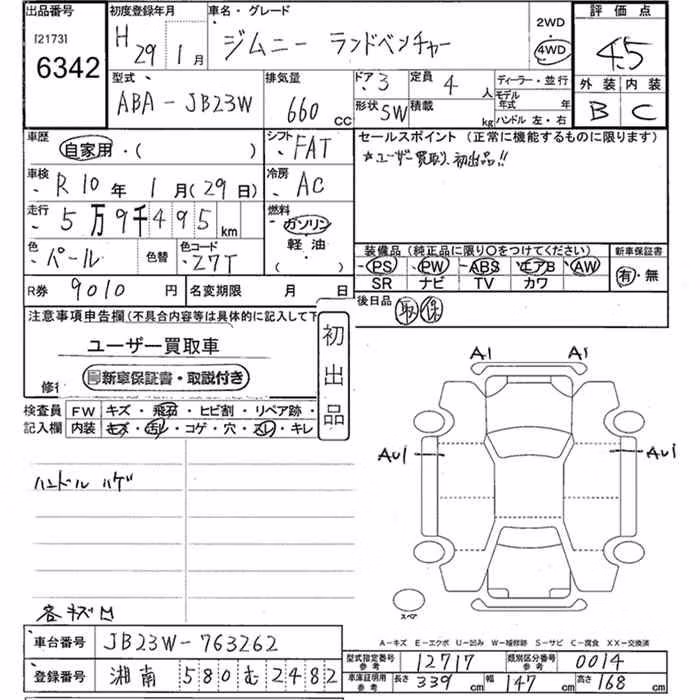 出品番号 初度登録年月 車名・グレード 評価点
[2173]
6342
H 29 1月
ジムニー ランドベンチャー
2WD
4WD
4.5
外装 内装
B C
型式 排気量 ドア 定員 ディーラー・並行
ABA-JB23W 660 CC 3 4人
形状 積載 モデル年式 年
5W kg ハンドル 左・右
車歴 シフト セールスポイント(正常に機能するものに限ります)
自家用・( ) FAT ☆ユーザー買取り 初出品!!
車検 冷房
R10年 1月(29日) AC
走行 燃料
5万9千495km ガソリン
軽油
( )
色 色替 色コード
パール Z7T
装備品(純正品に限り○をつけてください) 新車保証書
PS PW ABS エアB AW
SR ナビ TV カワ
有・無
R券 9010円 名変期限 月 日
後日品 取 保
注意事項申告欄(不具合内容等は具体的に記入して下
ユーザー買取車
新車保証書・取説付き
修
初出品
検査員 FW キズ・飛石・ヒビ割・リペア跡・
記入欄 内装 キズ・汚レ・コゲ・穴・スレ・キレ
ハンドル ハゲ
各キズ凹
A1 A1
AU1 AU1
スペア
A-キズ E-エクボ U-凹み W-補修跡 S-サビ C-腐食 XX-交換済
車台番号 JB23W-763262
登録番号 湘南 580 む 2482
型式指定番号 参考 12717 類別区分番号 参考 0014
車庫証明用 参考 長さ 339cm 幅 147cm 高さ 168cm